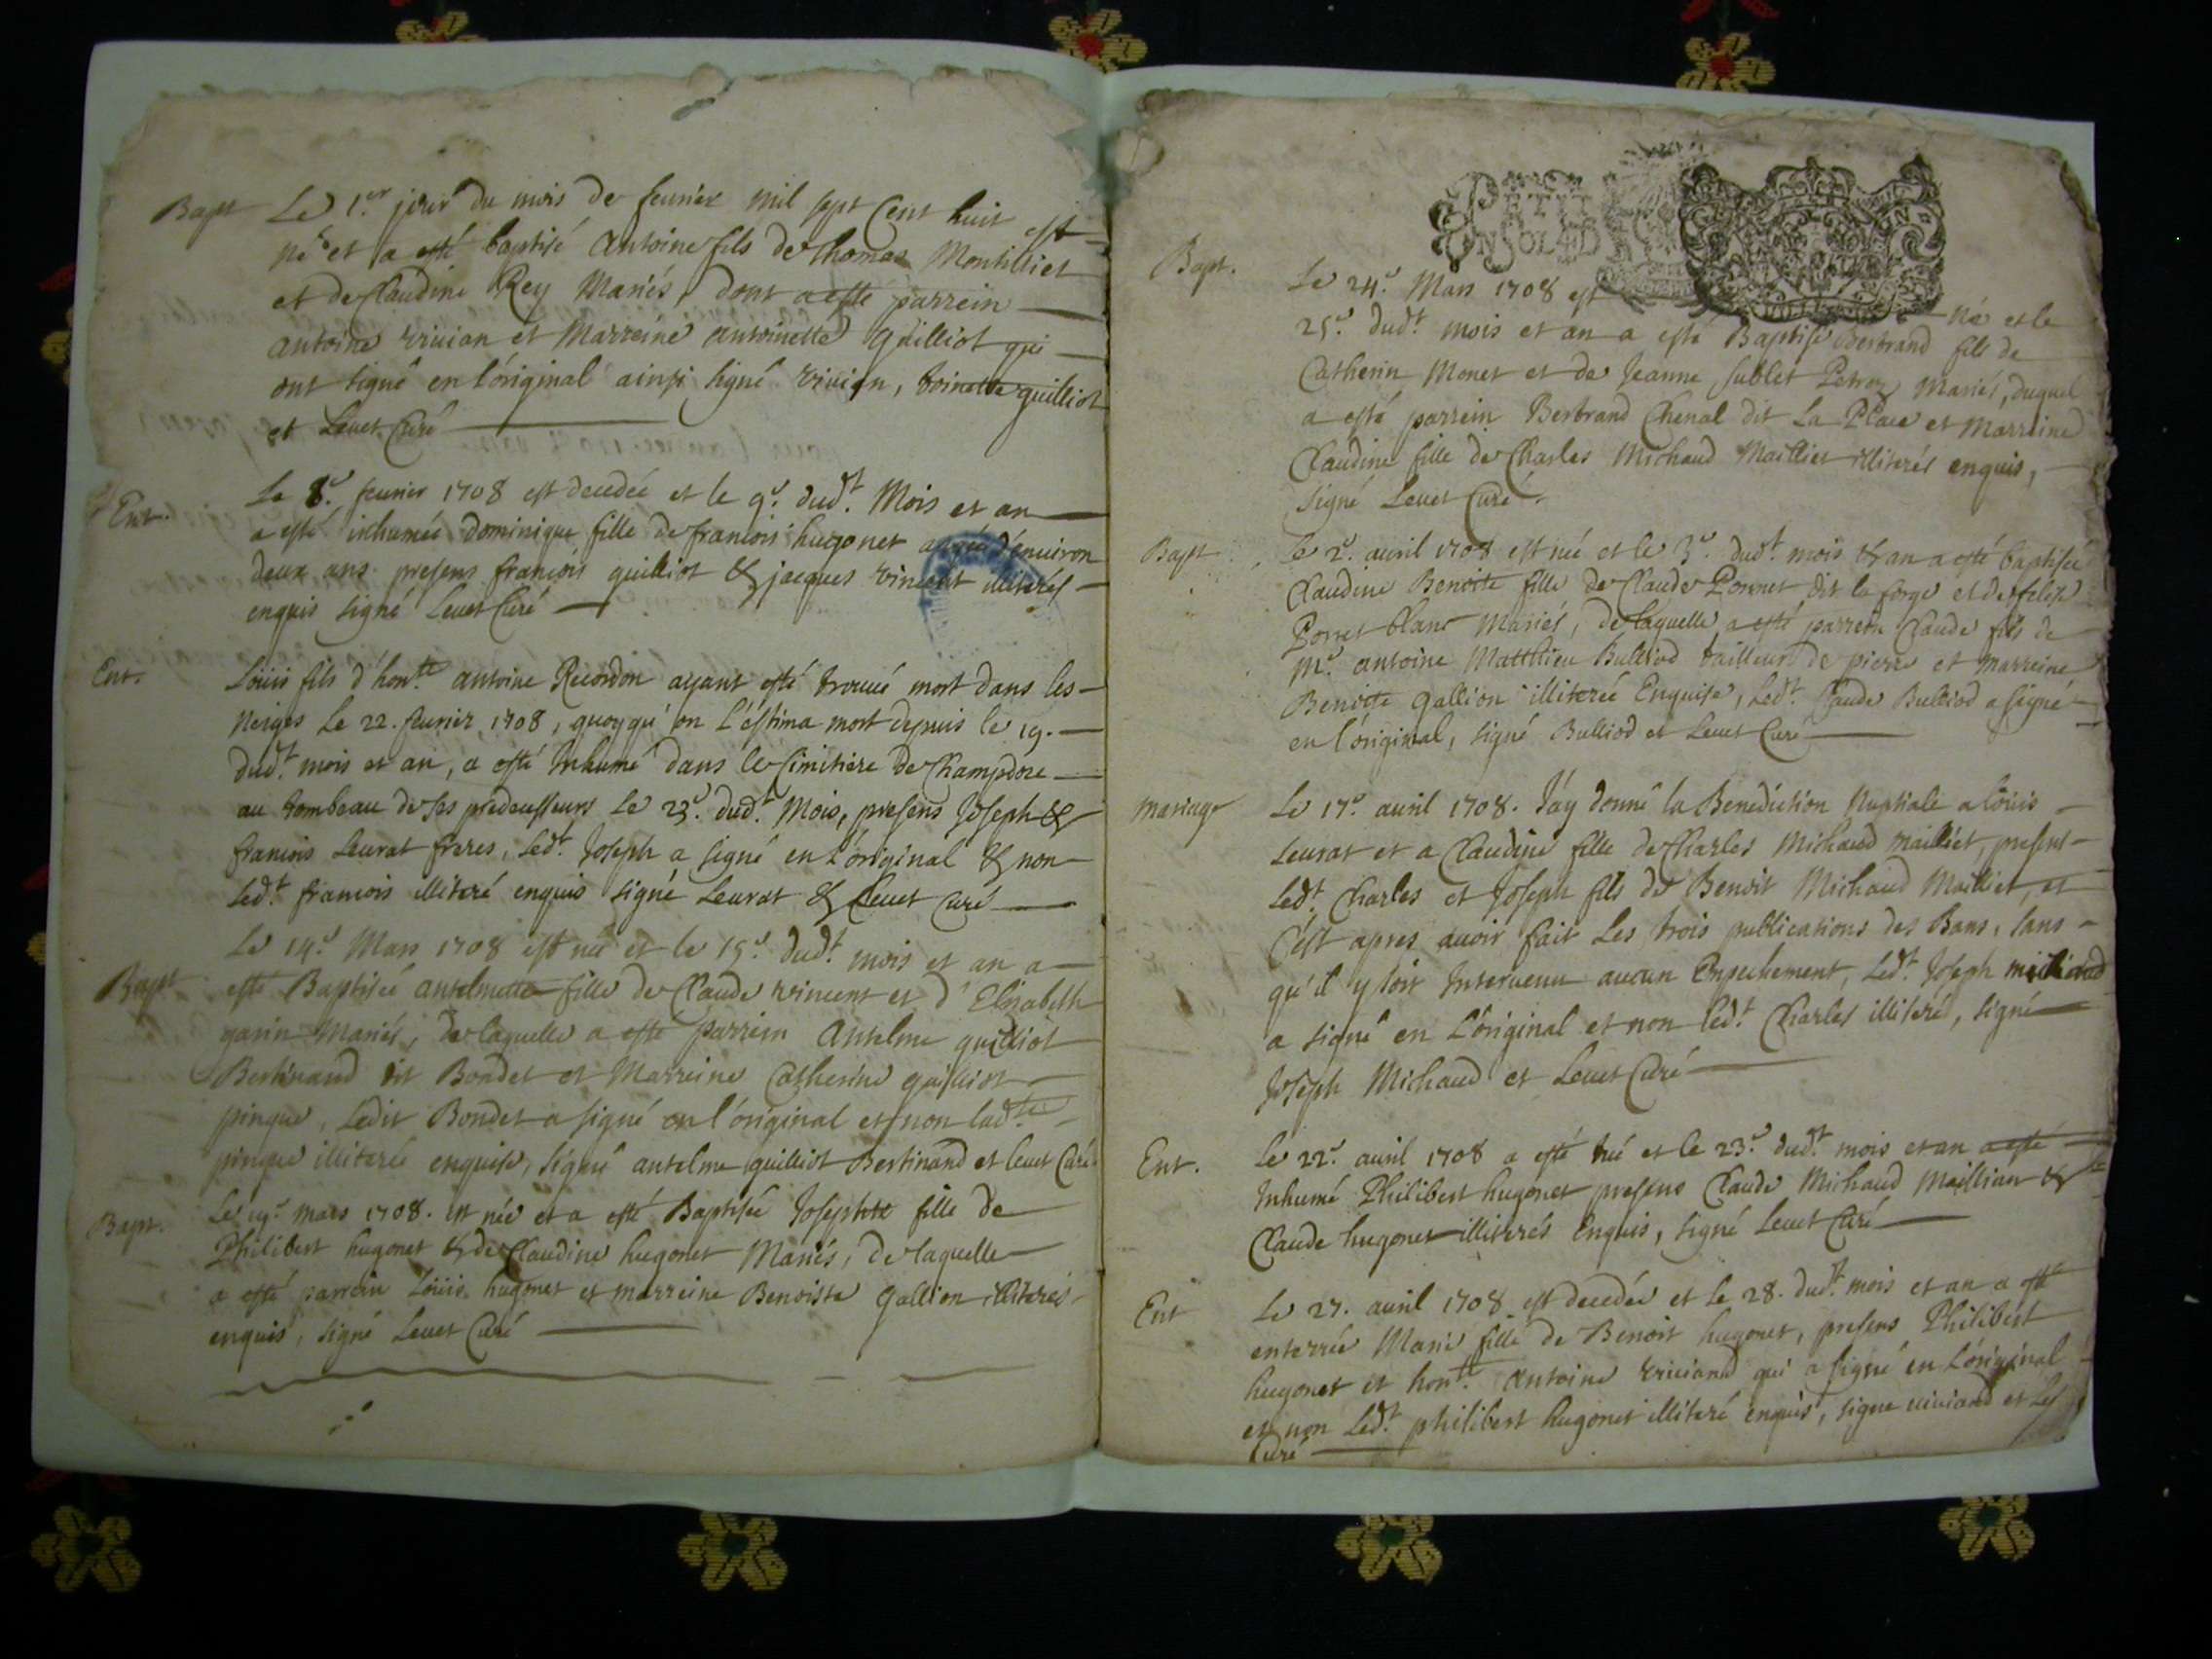 Bapt
Le 1.er jour du mois de feurier mil sept Cent huit est
né et a esté baptisé Antoine fils de Thomas Montilliet
et de Claudine Rey Mariés, dont a esté parrein
antoine vivian et Marreine antoinette guilliot qui
ont signé en l'original ainsi signé vivian, toinette guilliot
et Leuet Curé
Ent.
Le 8.e feurier 1708 est decedée et le 9.e dud.t Mois et an
a esté inhumée dominique fille de francois hugonet agée d'enuiron
deux ans presens francois guilliot & jacques vincent illiterés
enquis signé Leuet Curé
Ent.
Loüis fils d'hon.te antoine Recordon ayant esté trouué mort dans les
Neiges Le 22. feurier 1708, quoyqu'on L'estima mort depuis le 19.
dud.t mois et an, a esté Inhumé dans le Cimitiere de Champdore
au tombeau de ses predecesseurs Le 23.e dud.t Mois, presens Joseph &
francois Leurat freres, Led.t Joseph a signé en L'original & non
Led.t francois illiteré enquis signé Leurat & Leuet Curé
Bapt
Le 14.e Mars 1708 est née et le 15.e dud.t mois et an a
esté Baptisée antelmette fille de Claude vincent et d'Elisabeth
garin Mariés, de laquelle a esté parrein Antelme guilliot
Bertinand dit Bondet et Marreine Catherine guilliot
pinque, Ledit Bondet a signé en l'original et non lad.te
pinque illiterée enquise, signé antelme guilliot Bertinand et leuet Curé
Bapt.
Le 19.e mars 1708. est née et a esté Baptisée Josephte fille de
Philibert hugonet & de Claudine hugonet Mariés, de laquelle
a esté parrein Loüis hugonet et marreine Benoiste gallion illiterés
enquis, signé Leuet Curé
Bapt.
Le 24.e Mars 1708 est né et le
25.e dud.t mois et an a esté Baptisé Bertrand fils de
Catherin Monet et de Jeanne sublet Petroz Mariés, duquel
a esté parrein Bertrand Chenal dit La Place et Marreine
Claudine fille de Charles Michaud Mailliet illiterés enquis,
signé Leuet Curé.
Bapt
Le 2.e auril 1708 est née et le 3.e dud.t mois & an a esté baptisée
Claudine Benoite fille de Claude Ponnet dit la forge et de felise
Porret blanc Mariés, de laquelle a esté parrein Claude fils de
M.e antoine Matthieu Bulliod tailleur de pierre et marreine
Benoite gallion illiterée Enquise, Led.t Claude Bulliod a signé
en l'original, signé Bulliod et Leuet Curé
Mariage
Le 17.e auril 1708. J'ay donné la Benediction Nuptiale a Loüis
Leurat et a Claudine fille de Charles Michaud Mailliet, present
Led.t Charles et Joseph fils de Benoit Michaud Mailliet, et
C'est apres auoir fait Les trois publications des Bans, sans
qu'il y soit Interuenu aucun Enpechement, Led.t Joseph michaud
a signé en L'original et non Led.t Charles illiteré, signé
Joseph Michaud et Leuet Curé
Ent.
Le 22.e auril 1708 a esté tué et le 23.e dud.t mois et an a esté
Inhumé Philibert hugonet presens Claude Michaud Mailliet &
Claude hugonet illiterés Enquis, signé Leuet Curé
Ent
Le 27. auril 1708 est decedée et Le 28. dud.t mois et an a esté
enterrée Marie fille de Benoit hugonet, presens Philibert
hugonet et hon.te Antoine viviand qui a signé en L'original
et non Led.t philibert hugonet illiteré enquis, signe viviand et Les
Curé